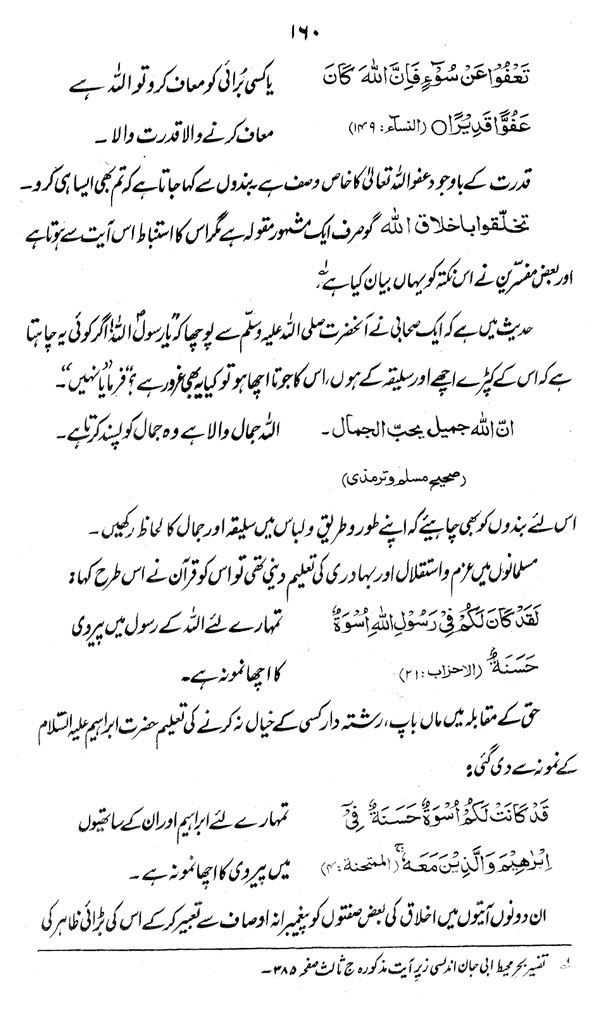 ۱۶۰
تَعْفُوْا عَنْ سُوْٓءٍ فَاِنَّ اللّٰهَ كَانَ یا کسی بُرائی کو معاف کرو تو اللہ ہے
عَفُوًّا قَدِيْرًا○ (النساء: ۱۴۹) معاف کرنے والا قدرت والا ۔
قدرت کے باوجود عفو اللہ تعالیٰ کا خاص وصف ہے بندوں سے کہا جاتا ہے کہ تم بھی ایسا ہی کرو ۔
تخلّقوا باخلاق اللّٰه گو صرف ایک مشہور مقولہ ہے مگر اس کا استنباط اس آیت سے ہوتا ہے
اور بعض مفسّرین نے اس نکتہ کو یہاں بیان کیا ہے ؂۱
حدیث میں ہے کہ ایک صحابی نے آنحضرت صلی اللہ علیہ وسلّم سے پوچھا کہ "یا رسول اللہؐ! اگر کوئی یہ چاہتا
ہے کہ اس کے کپڑے اچھے اور سلیقہ کے ہوں، اس کا جوتا اچھا ہو تو کیا یہ بھی غرور ہے؟" فرمایا "نہیں"۔
انّ اللّٰه جميل يحبّ الجمال ۔ اللہ جمال والا ہے وہ جمال کو پسند کرتا ہے۔
(صحیح مسلم و ترمذی)
اس لئے بندوں کو بھی چاہیئے کہ اپنے طور و طریق و لباس میں سلیقہ اور جمال کا لحاظ رکھیں ۔
مسلمانوں میں عزم و استقلال اور بہادری کی تعلیم دینی تھی تو اس کو قرآن نے اس طرح کہا:
لَقَدْ كَانَ لَكُمْ فِيْ رَسُوْلِ اللّٰهِ اُسْوَةٌ تمہارے لئے اللہ کے رسول میں پیروی
حَسَنَةٌ (الاحزاب: ۲۱) کا اچھا نمونہ ہے۔
حق کے مقابلہ میں ماں باپ، رشتہ دار کسی کے خیال نہ کرنے کی تعلیم حضرت ابراہیم علیہ السّلام
کے نمونہ سے دی گئی:
قَدْ كَانَتْ لَكُمْ اُسْوَةٌ حَسَنَةٌ فِيْٓ تمہارے لئے ابراہیم اور ان کے ساتھیوں
اِبْرٰهِيْمَ وَالَّذِيْنَ مَعَهٗ ۚ (الممتحنة: ۴) میں پیروی کا اچھا نمونہ ہے ۔
ان دونوں آیتوں میں اخلاق کی بعض صفتوں کو پیغمبرانہ اوصاف سے تعبیر کر کے اس کی بڑائی ظاہر کی
؂۱ تفسیر بحر محیط ابی حبان اندلسی زیر آیت مذکورہ ج ثالث صفحہ ۳۸۵ ۔